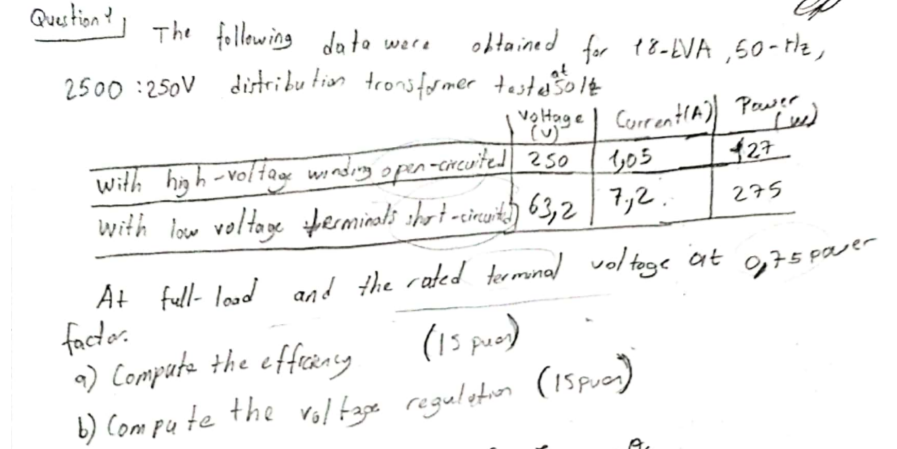 Question 1
The following data were obtained for 18-kVA, 50-Hz,
2500:250V distribution transformer tested at 50Hz
Voltage (V) Current (A) Power (W)
With high-voltage winding open-circuited 250 1,05 127
With low voltage terminals short-circuited 63,2 7,2 275
At full-load and the rated terminal voltage at 0,75 power
factor.
a) Compute the efficiency (15 puan)
b) Compute the voltage regulation (15 puan)